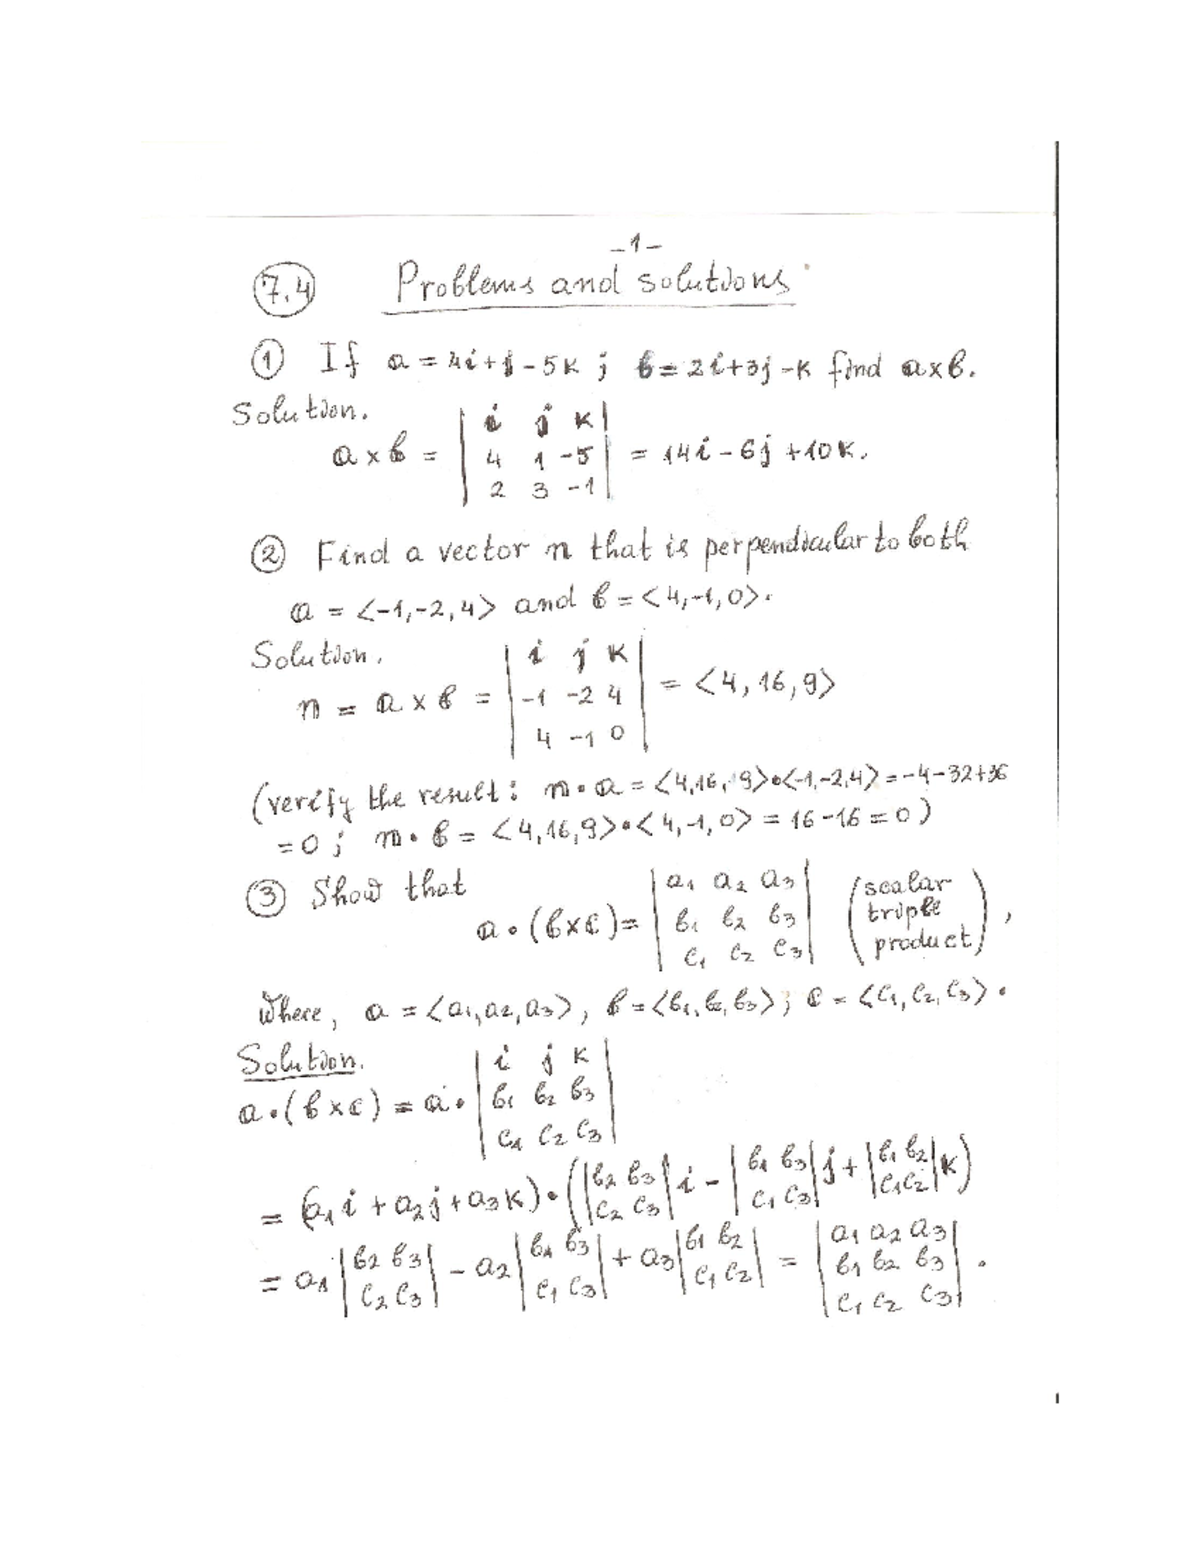 -1-
7.4 Problems and solutions
① If a = 4i+j-5k ; b = 2i+3j-k find a×b.
Solution.
a×b = | i j k | = 14i-6j+10k.
| 4 1 -5 |
| 2 3 -1 |
② Find a vector n that is perpendicular to both
a = <-1,-2,4> and b = <4,-1,0>.
Solution.
n = a×b = | i j k | = <4,16,9>
| -1 -2 4 |
| 4 -1 0 |
(verify the result: n•a = <4,16,9>•<-1,-2,4> = -4-32+36
=0 ; n•b = <4,16,9>•<4,-1,0> = 16-16=0)
③ Show that
a•(b×c) = | a₁ a₂ a₃ | (scalar
| b₁ b₂ b₃ | triple
| c₁ c₂ c₃ | product),
where, a = <a₁,a₂,a₃>, b = <b₁,b₂,b₃>; c = <c₁,c₂,c₃>.
Solution.
a•(b×c) = a•| i j k |
| b₁ b₂ b₃ |
| c₁ c₂ c₃ |
= (a₁i + a₂j + a₃k)•(| b₂ b₃ | i - | b₁ b₃ | j + | b₁ b₂ | k)
| c₂ c₃ | | c₁ c₃ | | c₁ c₂ |
= a₁ | b₂ b₃ | - a₂ | b₁ b₃ | + a₃ | b₁ b₂ | = | a₁ a₂ a₃ |
| c₂ c₃ | | c₁ c₃ | | c₁ c₂ | | b₁ b₂ b₃ | .
| c₁ c₂ c₃ |